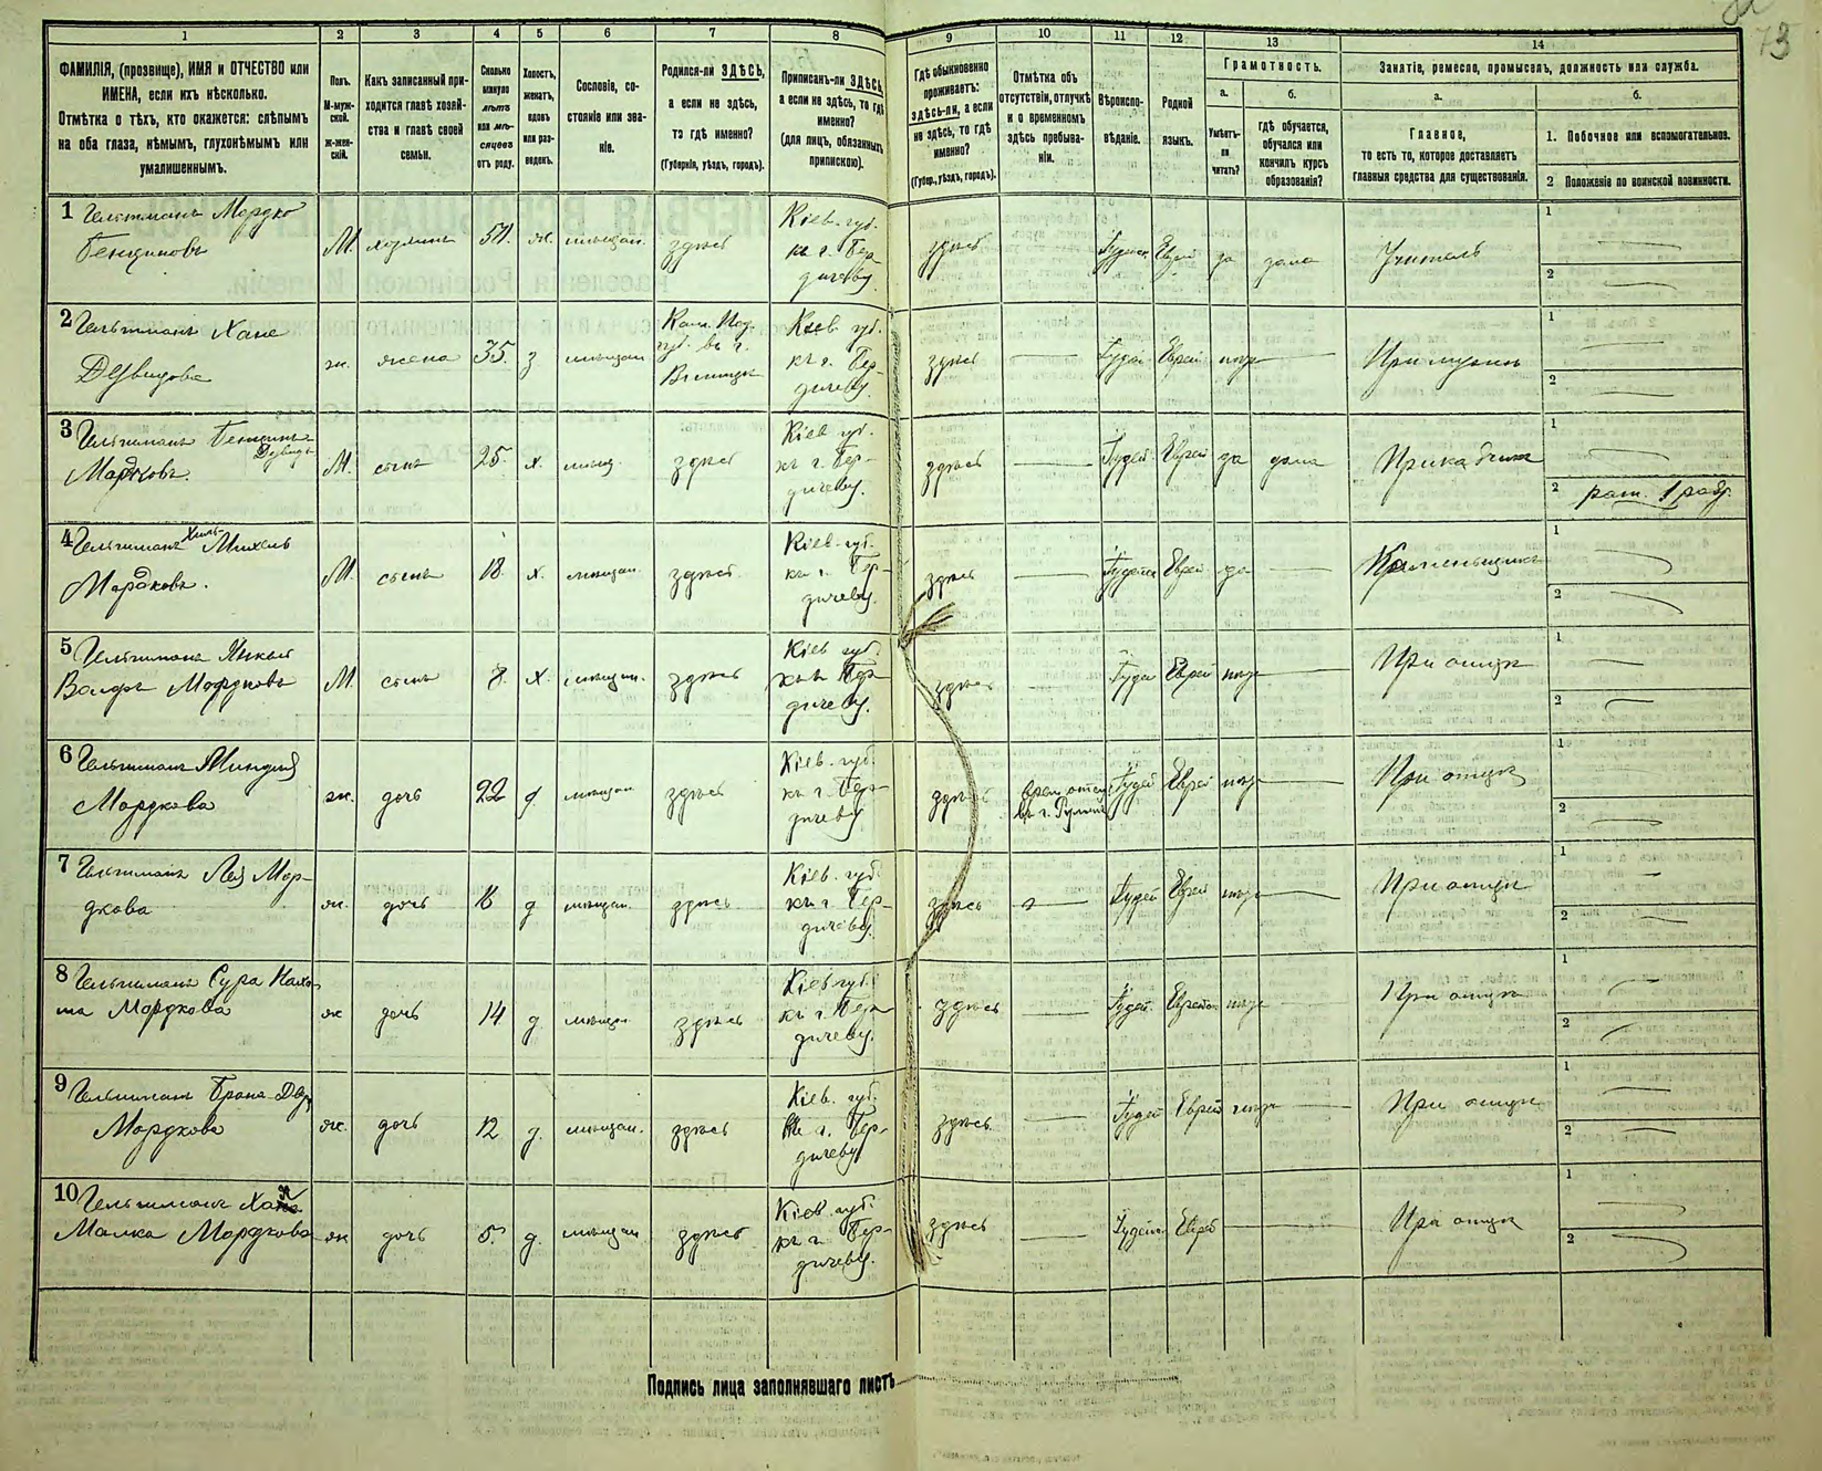 73
1 2 3 4 5 6 7 8 9 10 11 12 13 14
ФАМИЛІЯ, (прозвище), ИМЯ и ОТЧЕСТВО или
ИМЕНА, если ихъ нѣсколько.
Отмѣтка о тѣхъ, кто окажется: слѣпымъ
на оба глаза, нѣмымъ, глухонѣмымъ или
умалишеннымъ.
Полъ.
М-муж-
ской.
ж-жен-
скій.
Какъ записанный при-
ходится главѣ хозяй-
ства и главѣ своей
семьи.
Сколько
минуло
лѣтъ
или мѣ-
сяцевъ
отъ роду.
Холостъ,
женатъ,
вдовъ
или раз-
веденъ.
Сословіе, со-
стояніе или зва-
ніе.
Родился-ли ЗДѢСЬ,
а если не здѣсь,
то гдѣ именно?
(Губернія, уѣздъ, городъ).
Приписанъ-ли ЗДѢСЬ,
а если не здѣсь, то гдѣ
именно?
(для лицъ, обязанныхъ
припискою).
Гдѣ обыкновенно
проживаетъ:
здѣсь-ли, а если
не здѣсь, то гдѣ
именно?
(Губер., уѣздъ, городъ).
Отмѣтка объ
отсутствіи, отлучкѣ
и о временномъ
здѣсь пребыва-
ніи.
Вѣроиспо-
вѣданіе.
Родной
языкъ.
Грамотность.
а.
Умѣетъ-
ли
читать?
б.
Гдѣ обучается,
обучался или
кончилъ курсъ
образованія?
Занятіе, ремесло, промыселъ, должность или служба.
а.
Главное,
то есть то, которое доставляетъ
главныя средства для существованія.
б.
1. Побочное или вспомогательное.
2 Положеніе по воинской повинности.
1 Гельтманъ Мордко
Бенціоновъ
М. хозяинъ 54. ж. мѣщан. здѣсь
Кіев. губ.
къ г. Бер-
дичеву.
здѣсь Іудейск. Еврей да дома Учитель
1
2
2 Гельтманъ Хане
жена 35. з мѣщан
Кам. Под.
губ. въ г.
Кіев. губ.
къ г. Бер-
дичеву.
здѣсь Іудей Еврей При мужѣ
1
2
3 Гельтманъ
Мордковъ.
М. сынъ 25. х. мѣщ. здѣсь
Кіев. губ.
къ г. Бер-
дичеву.
здѣсь Іудей. Еврей да дома Прикащикъ
1
2 рат. 1 разр.
4 Гельтманъ Хиль-Михель
Мордковъ.
М. сынъ 18. х. мѣщан. здѣсь
Кіев. губ.
къ г. Бер-
дичеву.
здѣсь Іудейск Еврей да Каменьщикъ
1
2
5 Гельтманъ
Вольфъ Мордковъ
М. сынъ 8. х. мѣщан. здѣсь
Кіев. губ.
къ г. Бер-
дичеву.
здѣсь Іудей Еврей При отцѣ
1
2
6 Гельтманъ
Мордкова
ж. дочь 22 д. мѣщан здѣсь
Кіев. губ.
къ г. Бер-
дичеву
здѣсь
въ г.
Іудей Еврей При отцѣ
1
2
7 Гельтманъ Лея Мор-
дкова
ж. дочь 16 д мѣщан. здѣсь
Кіев. губ.
къ г. Бер-
дичеву.
здѣсь Іудей Еврей При отцѣ
1
2
8 Гельтманъ Сура
Мордкова
ж дочь 14 д. мѣщан здѣсь
Кіев губ.
къ г. Бер-
дичеву.
здѣсь Іудей. Еврейск При отцѣ
1
2
9 Гельтманъ
Мордкова
ж. дочь 12 д. мѣщан. здѣсь
Кіев. губ.
къ г. Бер-
дичеву
здѣсь. Іудей Еврей При отцѣ
1
2
10 Гельтманъ
Малка Мордкова
ж дочь 5. д. мѣщан здѣсь
Кіев. губ.
къ г. Бер-
дичеву.
здѣсь Іудейск Еврей При отцѣ
1
2
Подпись лица заполнявшаго листъ